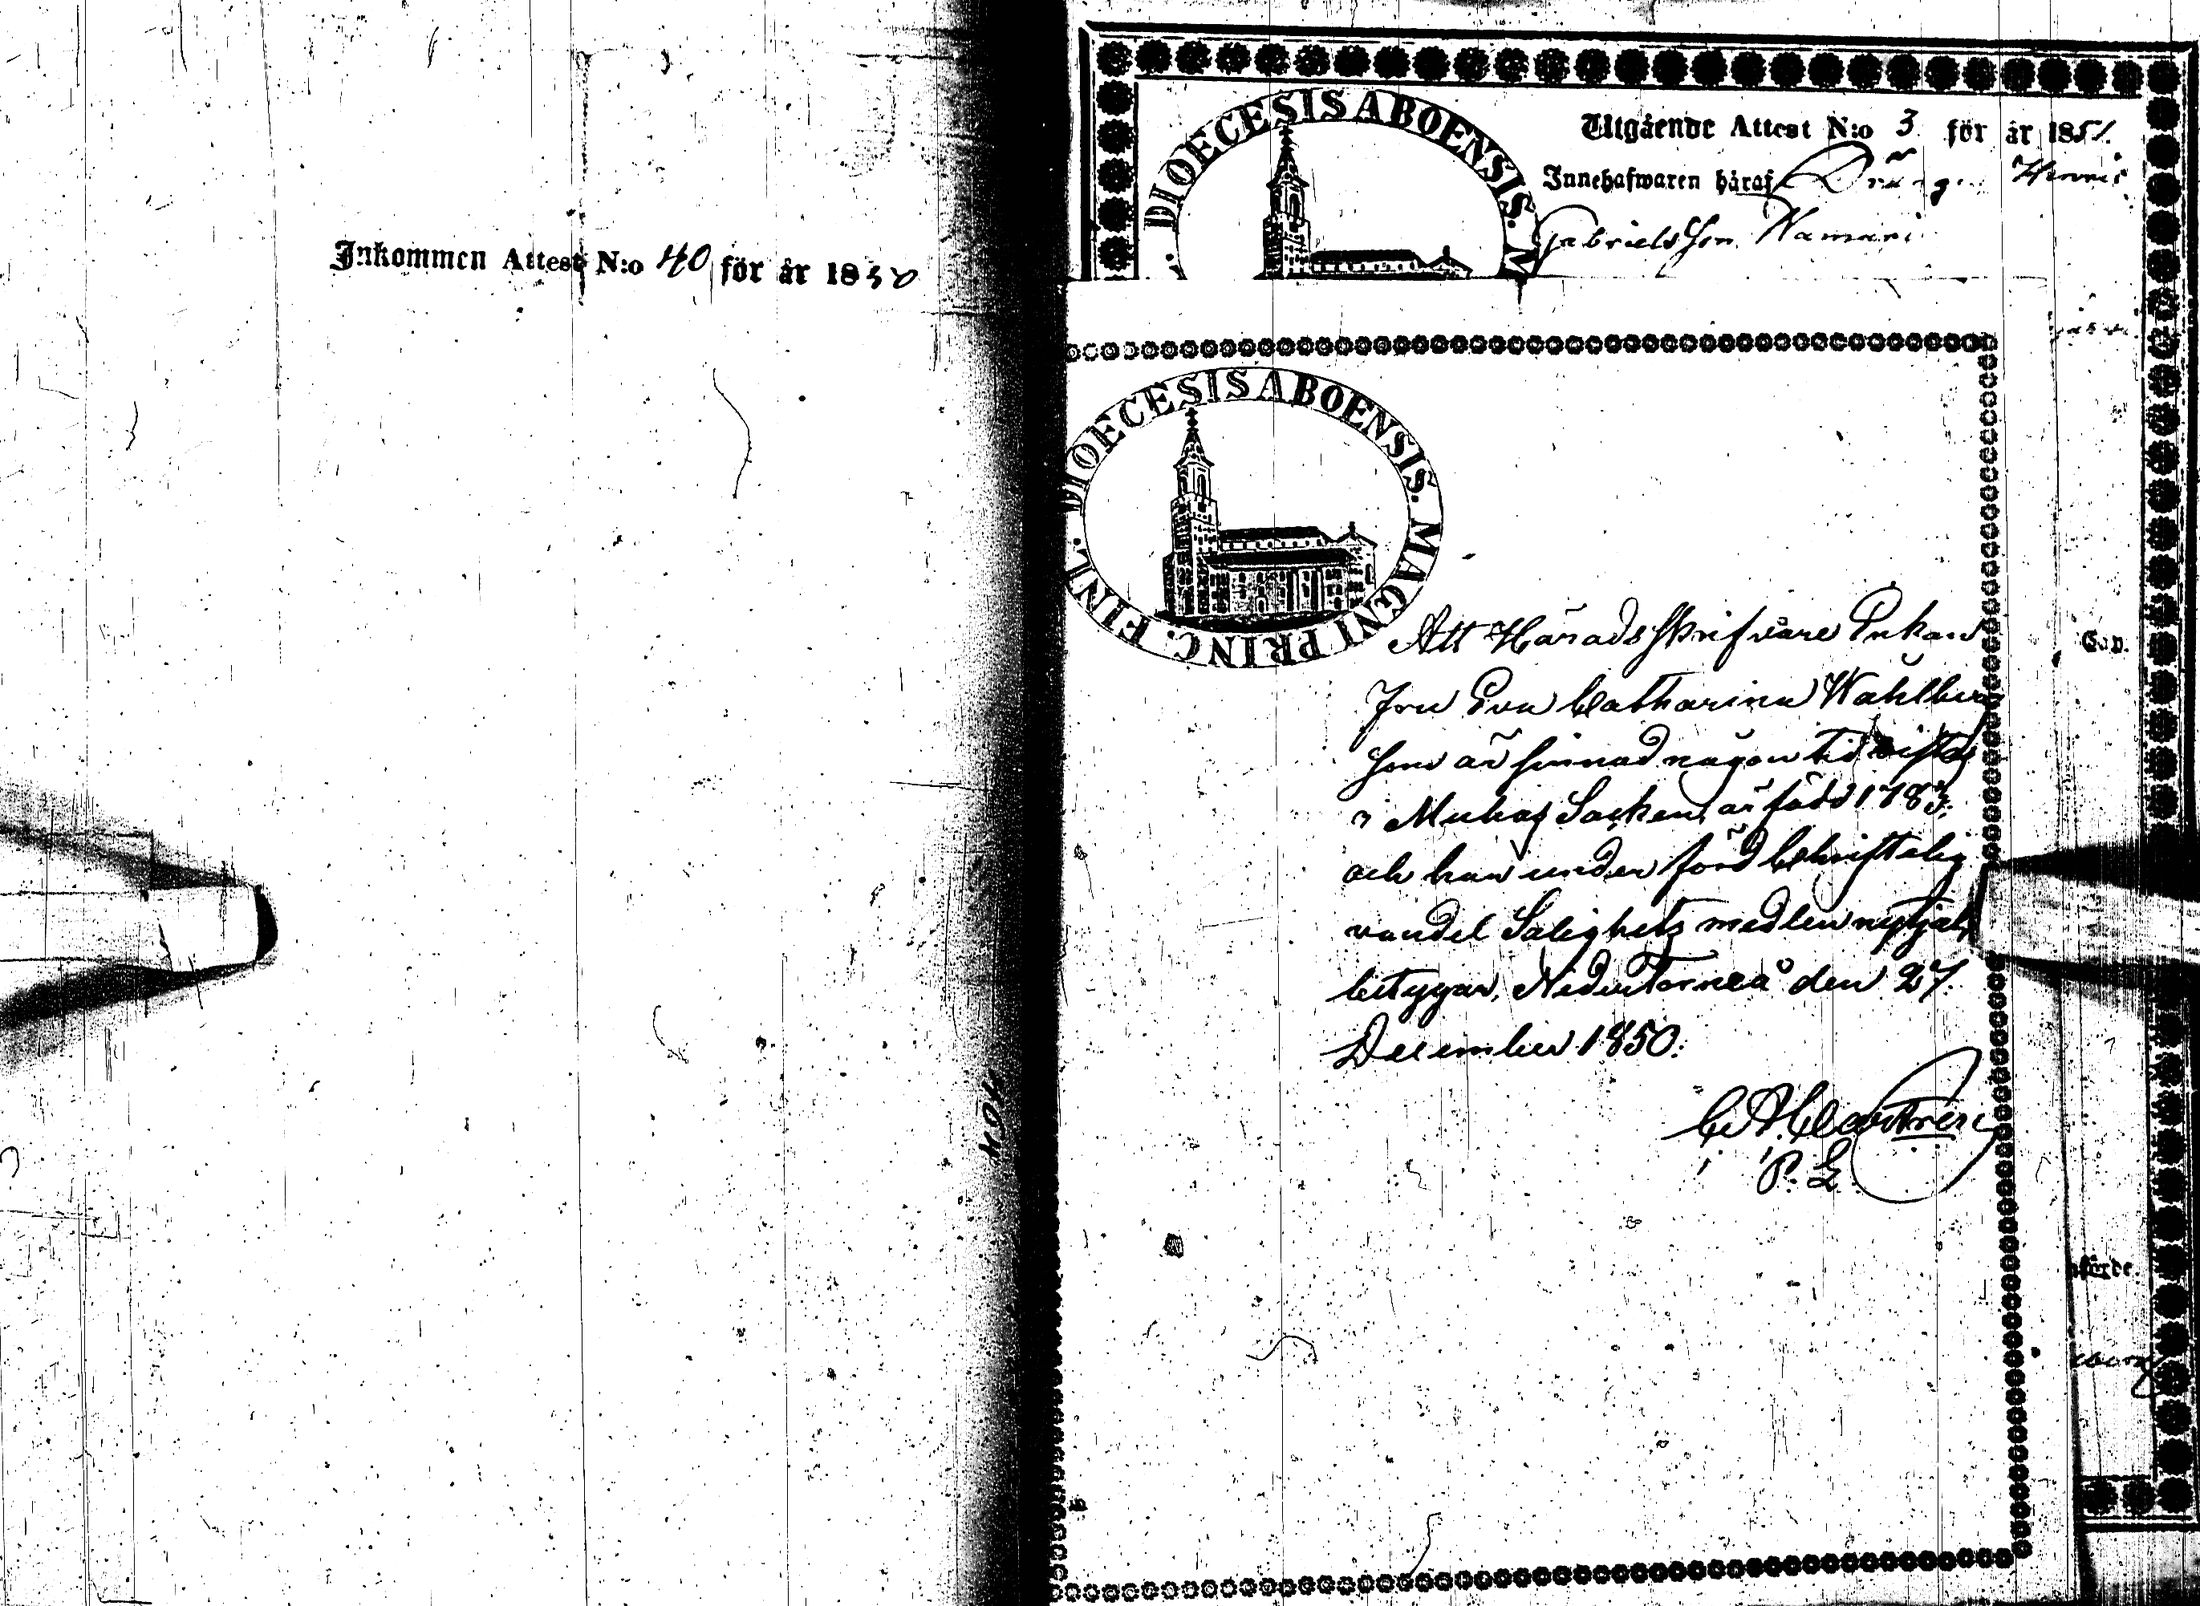 Inkommen Attest N:o 40 för år 1850
DIOECESIS ABOENSIS. M
Utgående Attest N:o 3 för år 1851.
Innehafwaren häraf Drängen Henric
Gabrielsson
DIOECESIS ABOENSIS. MAGNI PRINC. FINL.
Att Häradsskrifvare Enkan
Fru Eva Catharina Wahlberg
som är sinnad någon tid vistas
i Muhos Socken, är född 1783.
och har under förd Christelig
vandel Salighets medlen nyttjat,
betygar. NederTorneå den 27.
December 1850.
P. L.
404